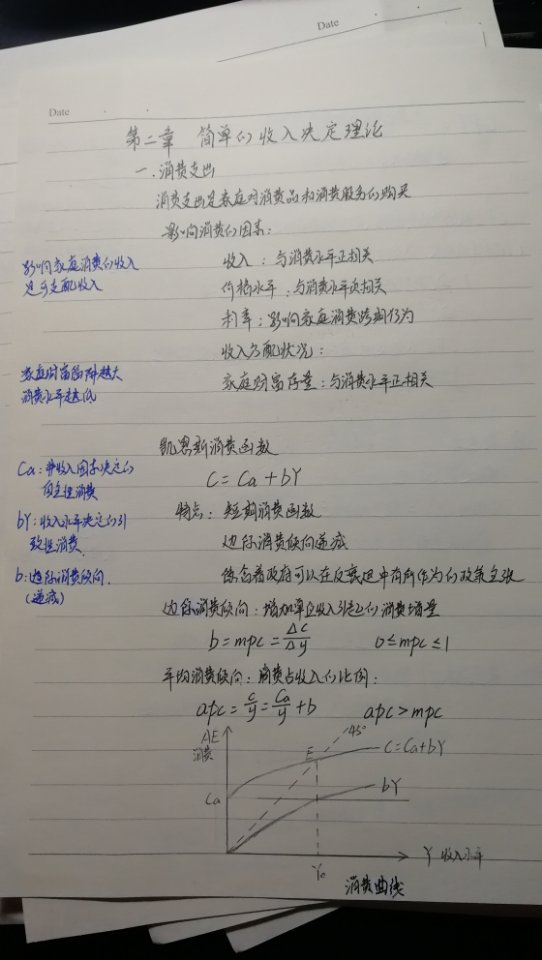 Date
Date
第二章 简单的收入决定理论
一.消费支出
消费支出是家庭对消费品和消费服务的购买
影响消费的因素:
影响家庭消费的收入
是可支配收入
收入:与消费水平正相关
价格水平:与消费水平负相关
利率:影响家庭消费跨期行为
收入分配状况:
家庭财富存量:与消费水平正相关
家庭财富
越大
消费水平越低
凯恩斯消费函数
C=Ca+bY
Ca:非收入因素决定的
自主性消费
bY:收入水平决定的引
致性消费.
b:边际消费倾向.
(递减)
特点:短期消费函数
边际消费倾向递减
隐含着政府可以在反衰退中有所作为的政策主张
边际消费倾向:增加单位收入引起的消费增量
b=mpc=Δc/Δy 0≤mpc≤1
平均消费倾向:消费占收入的比例:
apc=c/y=Ca/y+b apc>mpc
AE
消费
45°
E
C=Ca+bY
bY
Ca
Y 收入水平
Y₀
消费曲线